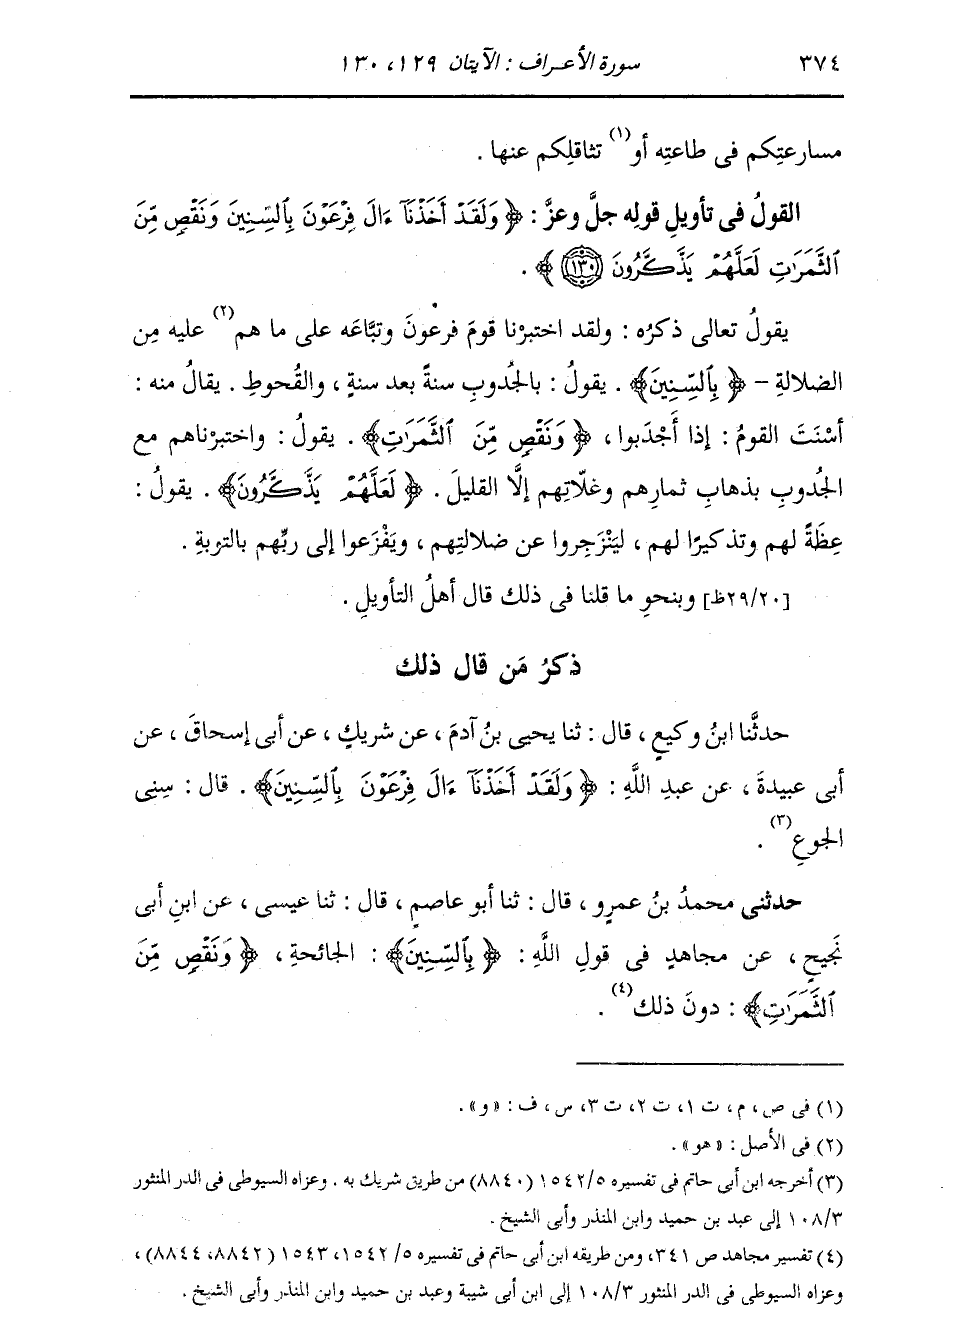 ٣٧٤ سورة الأعراف : الآيتان ١٢٩، ١٣٠
مسارعتِكم فى طاعتِه أو(١) تثاقلِكم عنها .
القولُ فى تأويلِ قولِه جلَّ وعزَّ : ﴿ وَلَقَدْ أَخَذْنَآ ءَالَ فِرْعَوْنَ بِٱلسِّنِينَ وَنَقْصٍ مِّنَ
ٱلثَّمَرَٰتِ لَعَلَّهُمْ يَذَّكَّرُونَ (١٣٠) ﴾ .
يقولُ تعالى ذكرُه : ولقد اختبرْنا قومَ فرعونَ وتبَّاعَه على ما هم(٢) عليه مِن
الضلالةِ – ﴿ بِٱلسِّنِينَ﴾ . يقولُ : بالجُدوبِ سنةً بعد سنةٍ ، والقُحوطِ . يقالُ منه :
أسْنَتَ القومُ : إذا أَجْدَبوا ، ﴿ وَنَقْصٍ مِّنَ ٱلثَّمَرَٰتِ﴾ . يقولُ : واختبرْناهم مع
الجُدوبِ بذهابِ ثمارِهم وغلّاتِهم إلَّا القليلَ . ﴿ لَعَلَّهُمْ يَذَّكَّرُونَ﴾ . يقولُ :
عِظَةً لهم وتذكيرًا لهم ، ليَنْزَجِروا عن ضلالتِهم ، ويَفْزَعوا إلى ربِّهم بالتربةِ .
[٢٩/٢٠ظ] وبنحوِ ما قلنا فى ذلك قال أهلُ التأويلِ .
ذكرُ مَن قال ذلك
حدثَّنا ابنُ وكيعٍ ، قال : ثنا يحيى بنُ آدمَ ، عن شريكٍ ، عن أبى إسحاقَ ، عن
أبى عبيدةَ ، عن عبدِ اللَّهِ : ﴿ وَلَقَدْ أَخَذْنَآ ءَالَ فِرْعَوْنَ بِٱلسِّنِينَ﴾ . قال : سِنِى
الجوعِ(٣) .
حدثنى محمدُ بنُ عمرٍو ، قال : ثنا أبو عاصمٍ ، قال : ثنا عيسى ، عن ابنِ أبى
نَجيحٍ ، عن مجاهدٍ فى قولِ اللَّهِ : ﴿ بِٱلسِّنِينَ﴾ : الجائحةِ ، ﴿ وَنَقْصٍ مِّنَ
ٱلثَّمَرَٰتِ﴾ : دونَ ذلك(٤) .
(١) فى ص ، م ، ت ١، ت ٢، ت ٣، س ، ف : « و» .
(٢) فى الأصل : « هو» .
(٣) أخرجه ابن أبى حاتم فى تفسيره ١٥٤٢/٥ (٨٨٤٠) من طريق شريك به . وعزاه السيوطى فى الدر المنثور
١٠٨/٣ إلى عبد بن حميد وابن المنذر وأبى الشيخ .
(٤) تفسير مجاهد ص ٣٤١، ومن طريقه ابن أبى حاتم فى تفسيره ٥/ ١٥٤٢، ١٥٤٣ (٨٨٤٢، ٨٨٤٤) ،
وعزاه السيوطى فى الدر المنثور ١٠٨/٣ إلى ابن أبى شيبة وعبد بن حميد وابن المنذر وأبى الشيخ .